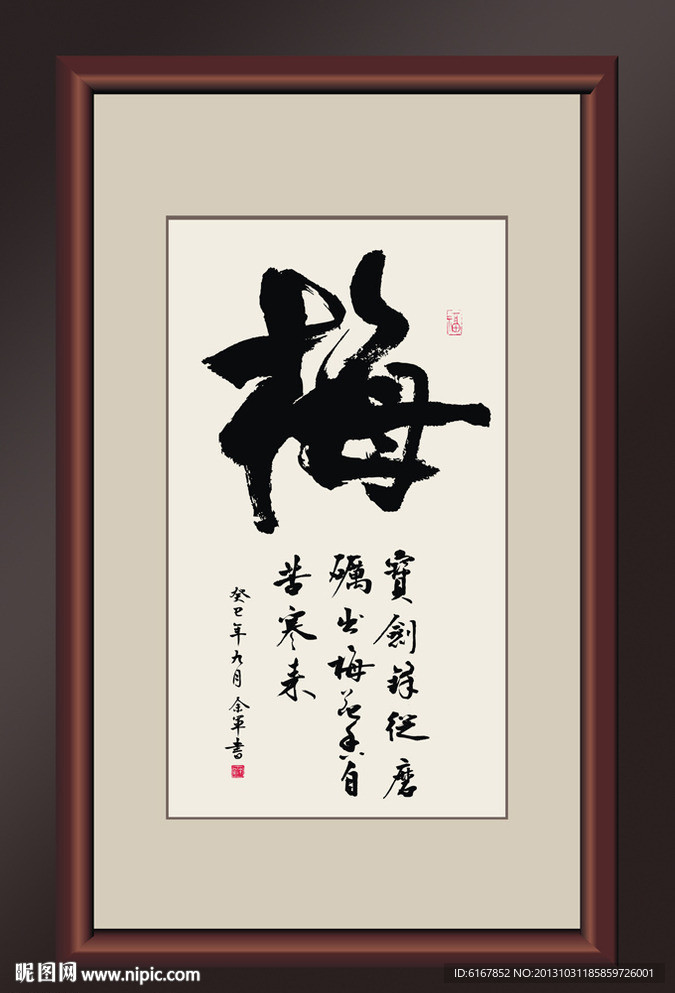 梅
寶劍鋒從磨
礪出梅花香自
苦寒来
癸巳年九月 余军書
昵图网 www.nipic.com
ID:6167852 NO:20131031185859726001